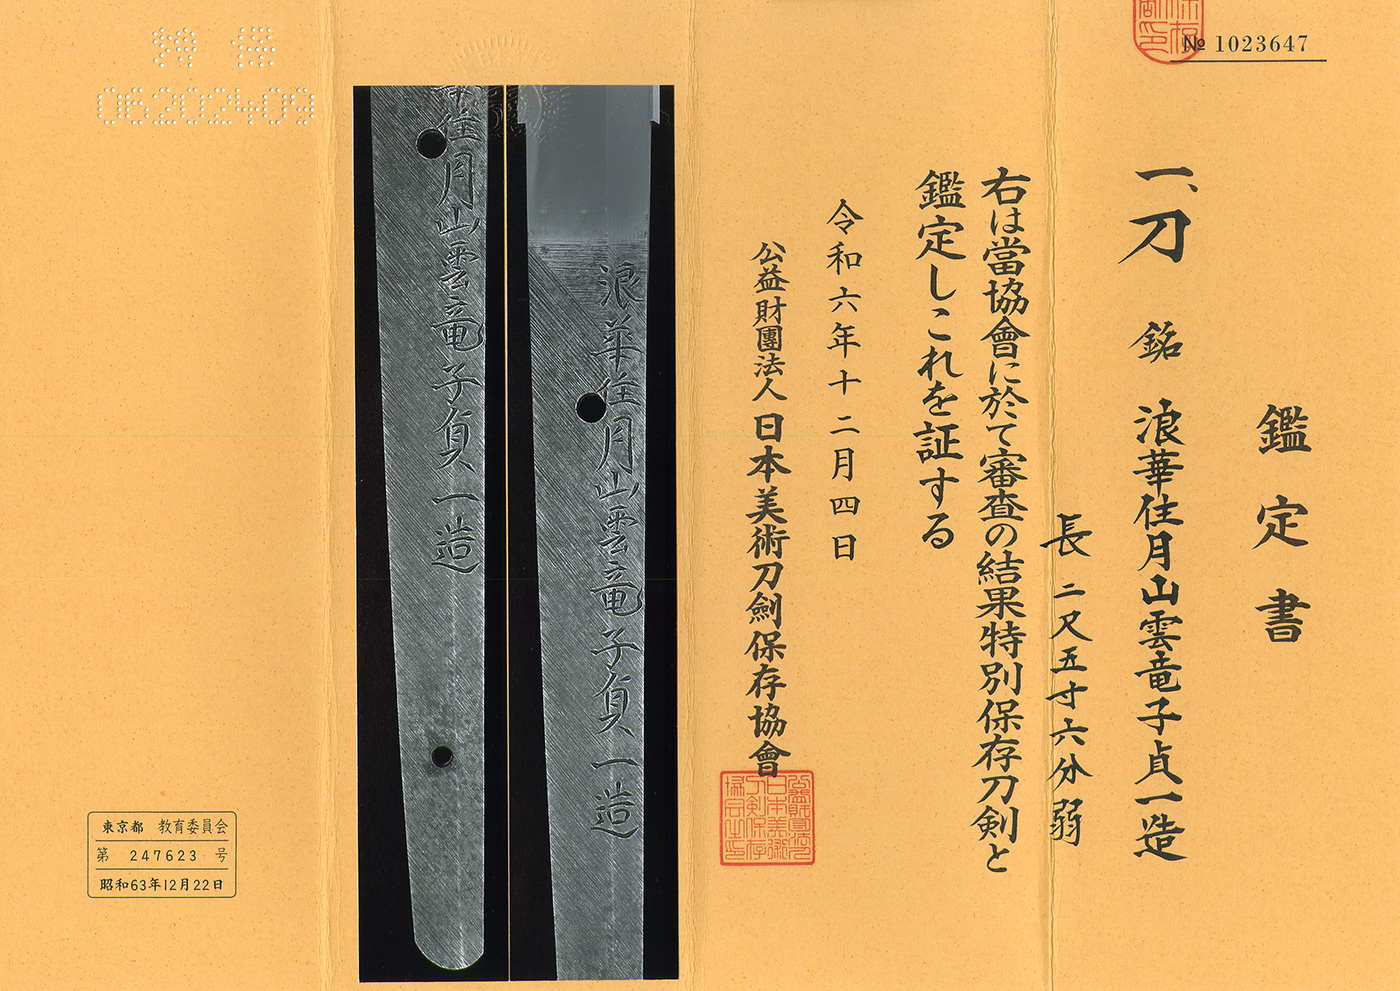 № 1023647
鑑定書
一、刀 銘 浪華住月山雲竜子貞一造
長 二尺五寸六分弱
右は當協會に於て審査の結果特別保存刀剣と
鑑定しこれを証する
令和六年十二月四日
公益財團法人日本美術刀劍保存協會
浪華住月山雲竜子貞一造
華住月山雲竜子貞一造
06202409
東京都 教育委員会
第 247623 号
昭和63年12月22日